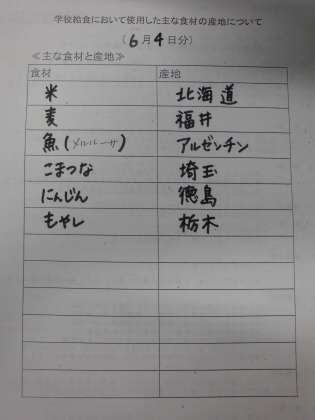 学校給食において使用した主な食材の産地について
（6月4日分）
≪主な食材と産地≫
食材 産地
米 北海道
麦 福井
魚(メルルーサ) アルゼンチン
こまつな 埼玉
にんじん 徳島
もやし 栃木